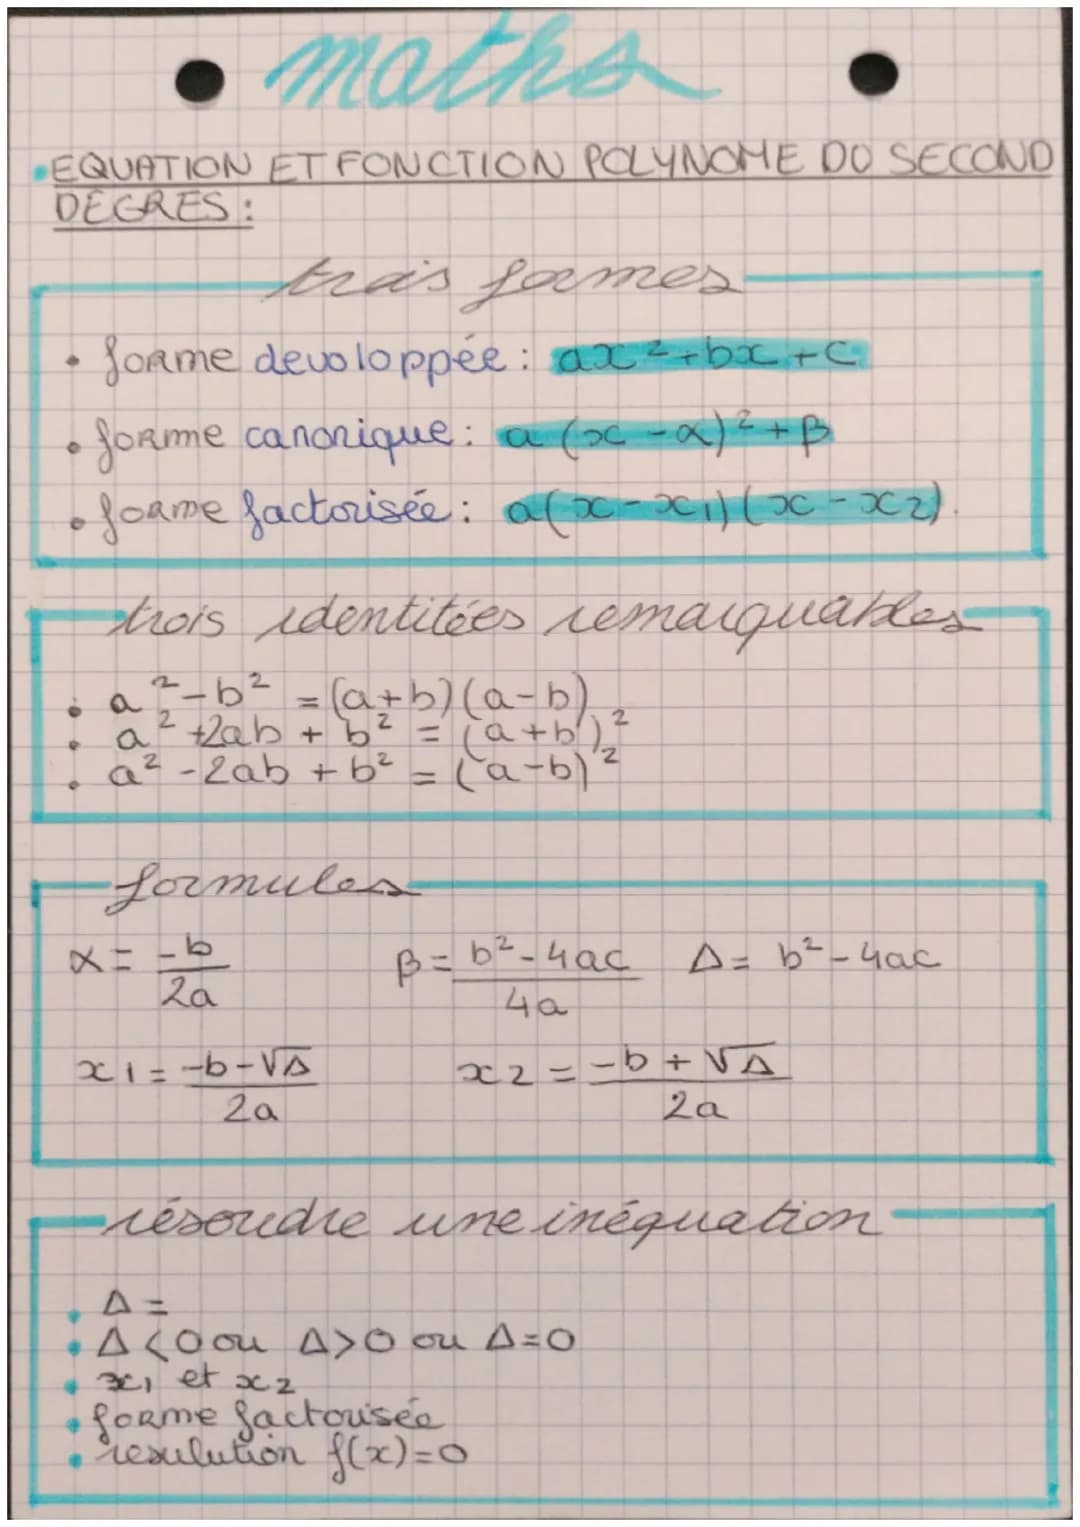 maths
• EQUATION ET FONCTION POLYNOME DU SECOND
DEGRES :
trois formes
• forme devoloppée : ax² + bx + c
• forme canonique : a (x - α)² + β
• forme factorisée : a(x - x1)(x - x2).
trois identitées remarquables
• a² - b² = (a+b)(a-b)
• a² +2ab + b² = (a+b)²
• a² - 2ab + b² = (a-b)²
formules
α = -b/2a β = b² - 4ac/4a Δ = b² - 4ac
x1 = -b-√Δ/2a x2 = -b + √Δ/2a
résoudre une inéquation
• Δ =
• Δ < 0 ou Δ > 0 ou Δ = 0
• x1 et x2
• forme factorisée
• resulution f(x) = 0